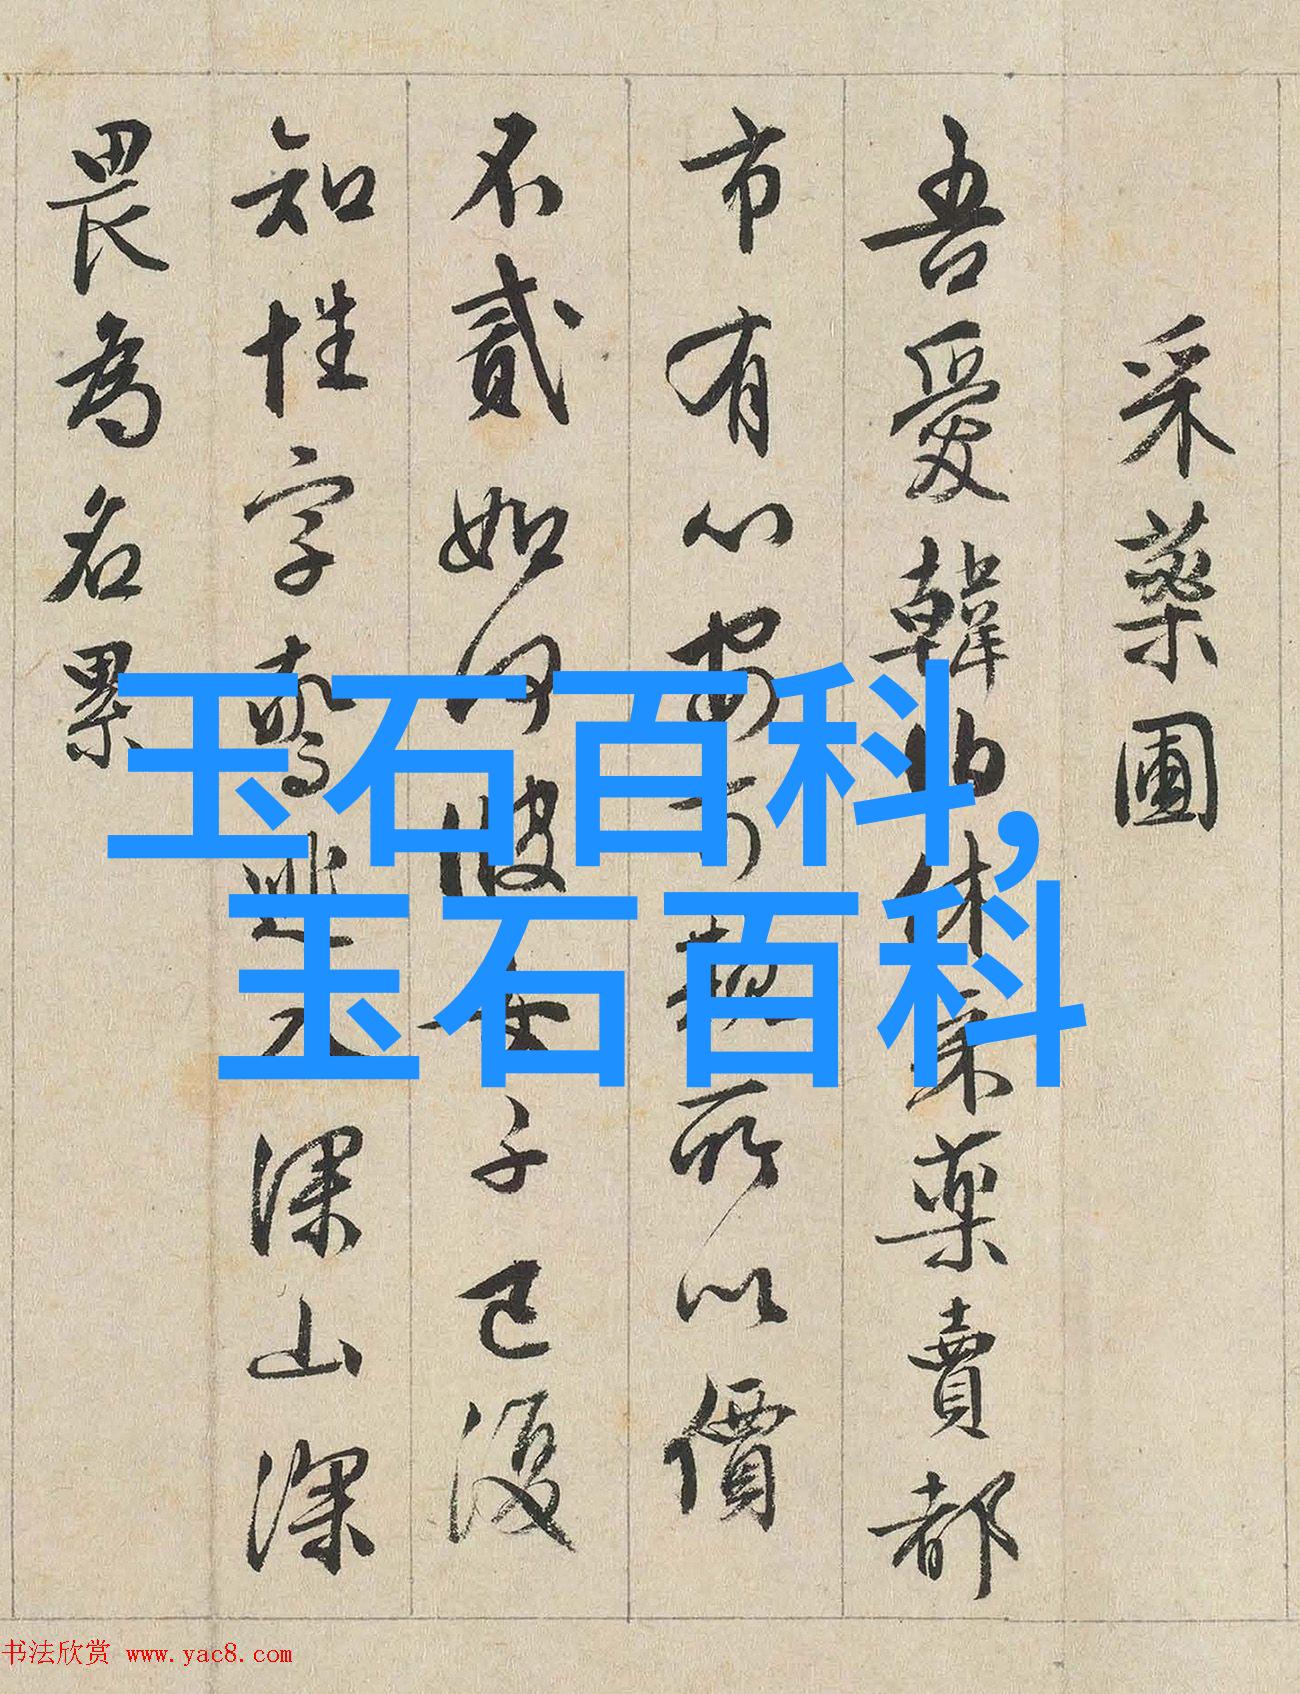 采藥圃
吾愛韓伯休采藥賣都
市有心安可觀所以價
不貳如何彼女子已復
知姓字驚逃入深山深
畏為名累
玉石百科,
玉石百科
书法欣赏 www.yac8.com